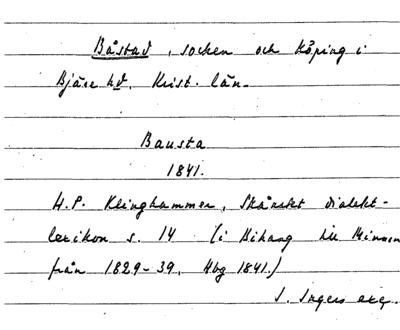 Båstad, socken och köping i
Bjäre hd, Krist. län.
Bausta
1841.
H.P. Klinghammer, Skånskt dialekt-
lexikon s. 14 (i Bihang till Minnen
från 1829-39, Hbg 1841.)
S. Ingers exc.